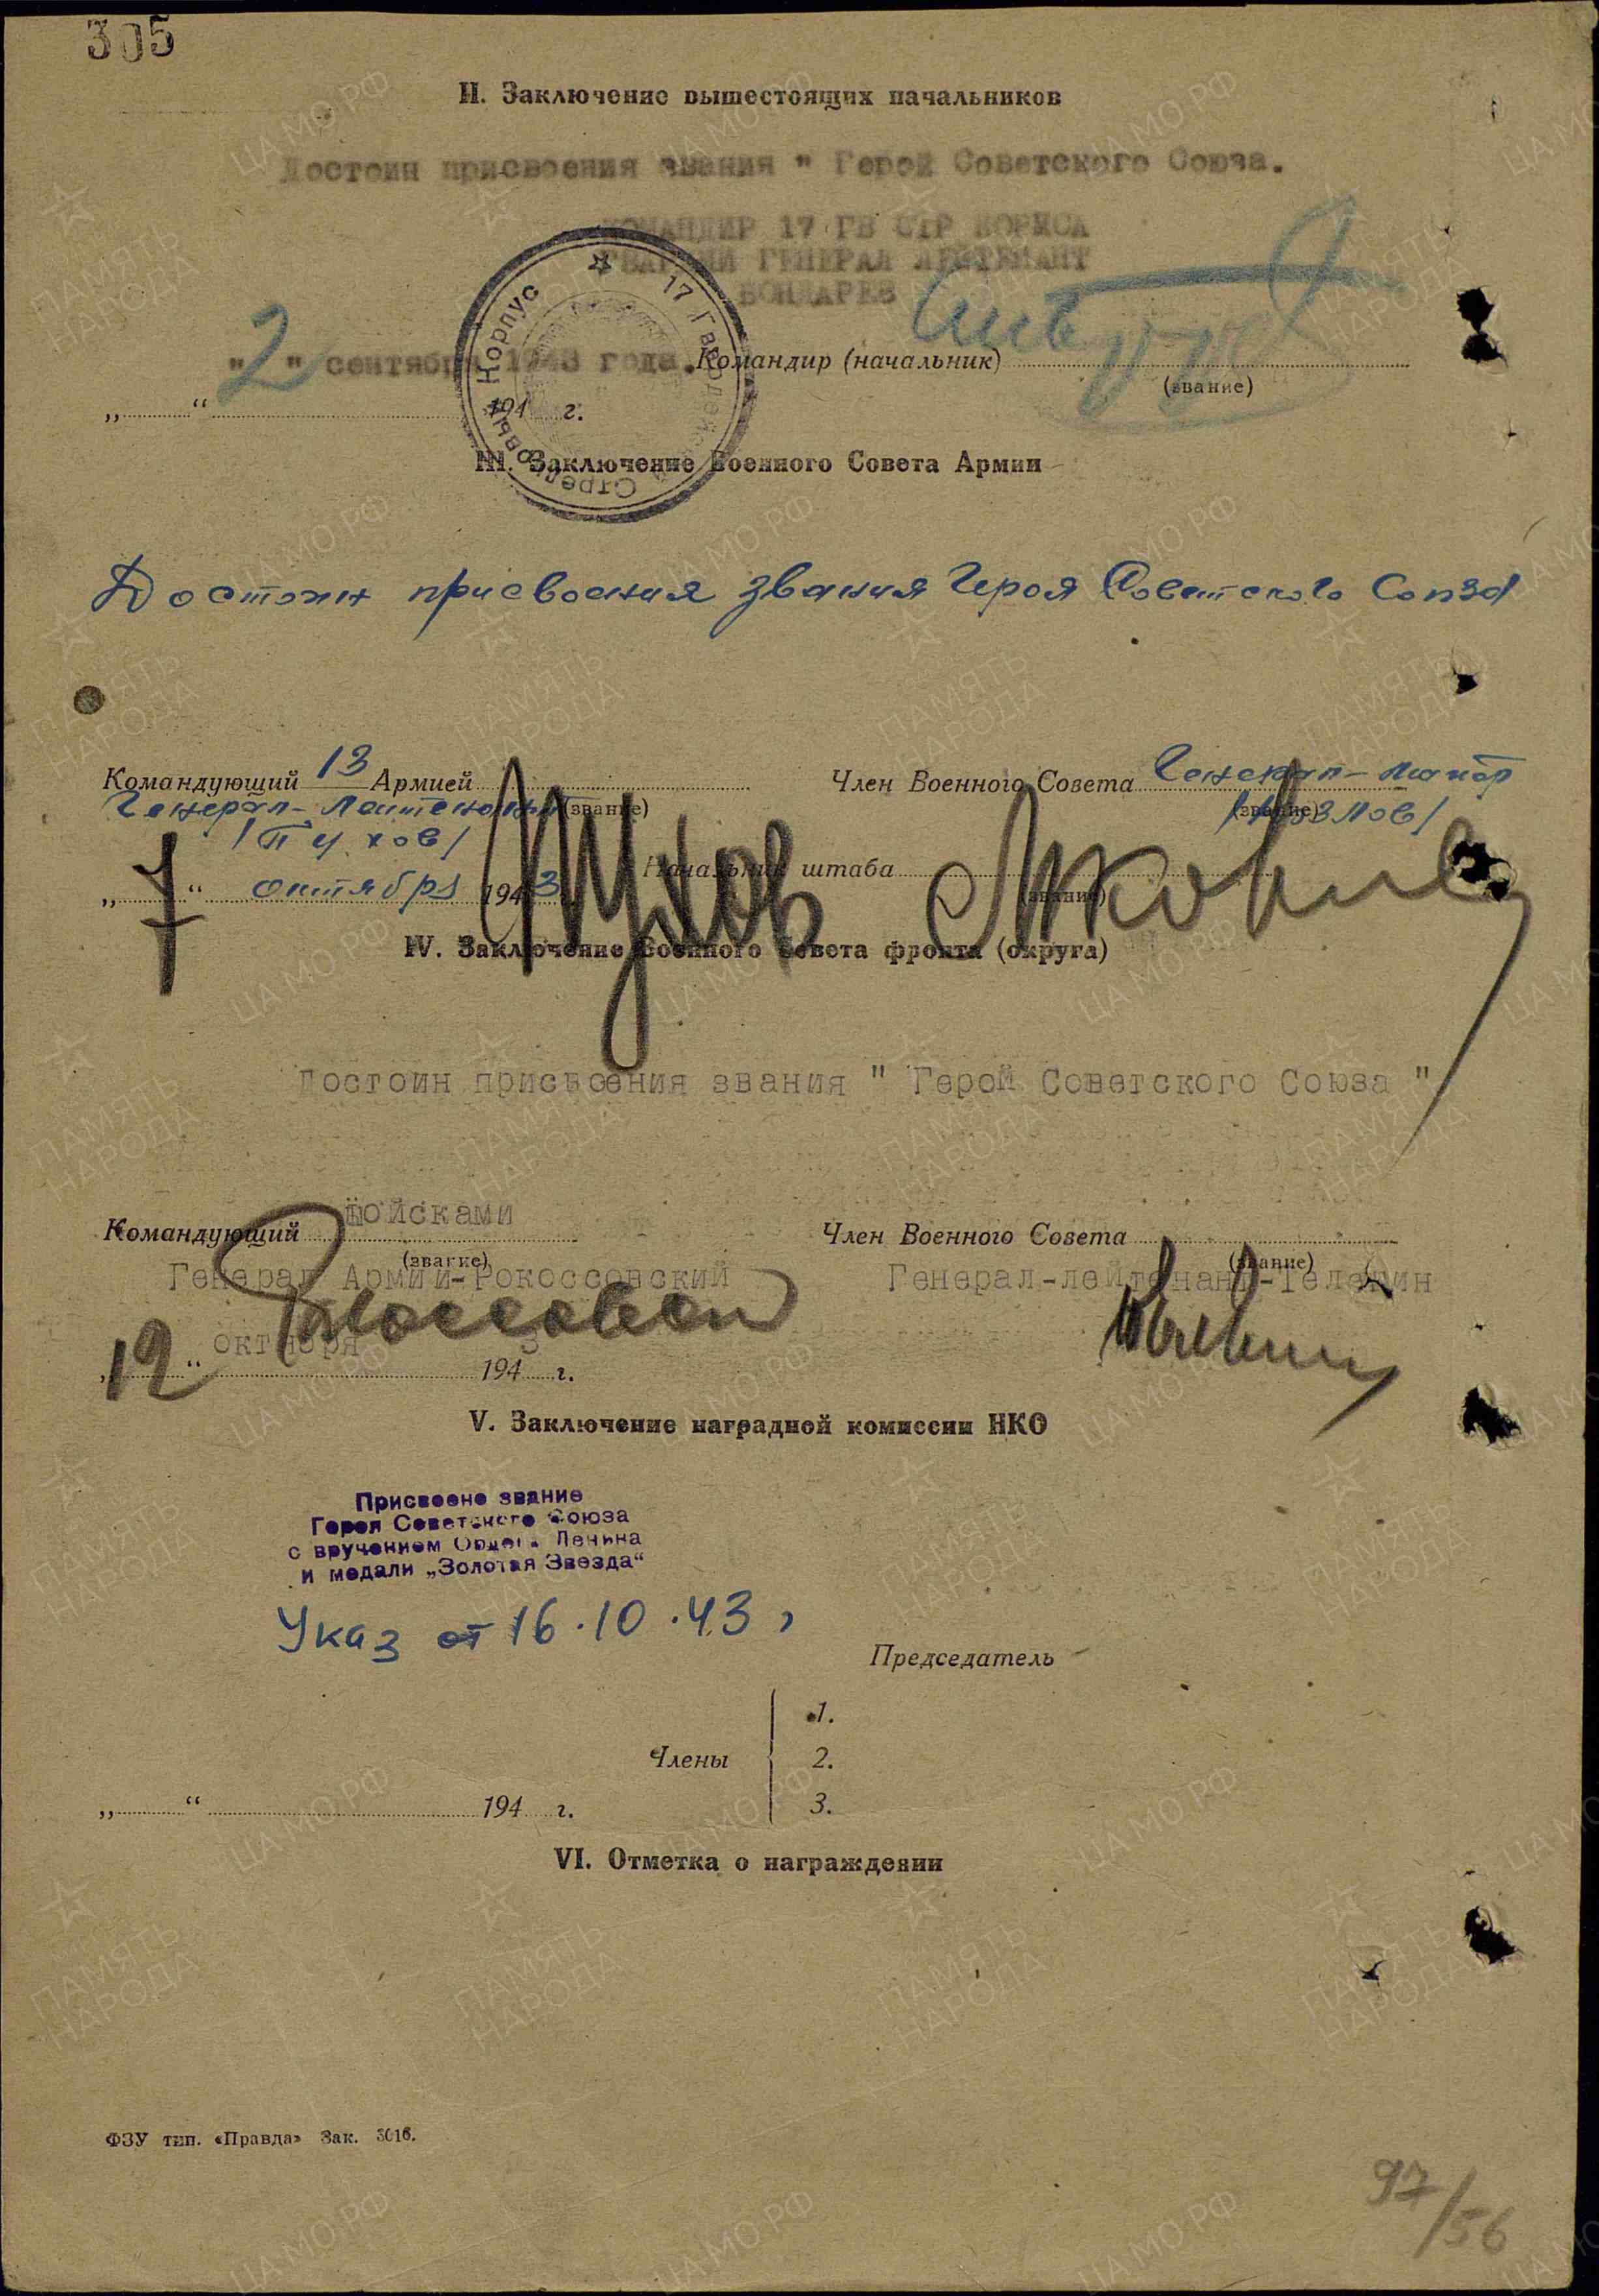 305
II. Заключение вышестоящих начальников
Достоин присвоения звания " Герой Советского Союза.
КОМАНДИР 17 ГВ СТР КОРПСА
ГВАРДИИ ГЕНЕРАЛ ЛЕЙТЕНАНТ
БОНДАРЕВ
" 2 " сентября 1943 года. Командир (начальник)
(звание)
„ “ 194 г.
17 Гвардейский Стрелковый Корпус
III. Заключение Военного Совета Армии
Достоин присвоения звания Героя Советского Союза
Командующий 13 Армией
Член Военного Совета Генерал-майор
Генерал-Лейтенант (звание)
(звание) /Козлов/
/Пухов/
Пухов
Начальник штаба
„ 7 “ октября 1943
(звание)
Козлов
IV. Заключение Военного Совета фронта (округа)
Достоин присвоения звания " Герой Советского Союза "
Командующий войсками
Член Военного Совета
(звание)
(звание)
Генерал Армии-Рокоссовский
Генерал-лейтенант-Телегин
„ 12 “ октября 1943 г.
V. Заключение наградной комиссии НКО
Присвоено звание
Героя Советского Союза
с вручением Ордена Ленина
и медали „Золотая Звезда“
Указ от 16.10.43,
Председатель
1.
Члены 2.
3.
„ “ 194 г.
VI. Отметка о награждении
ФЗУ тип. «Правда» Зак. 3016.
97/56
ЦА МО РФ
ПАМЯТЬ НАРОДА